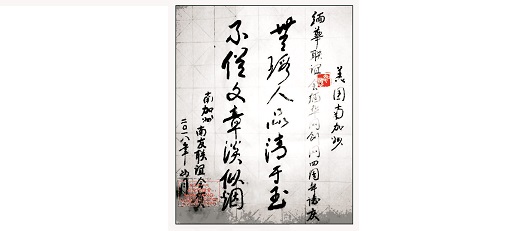 美国南加州
缅華联谊会缅華网创四周年誌庆
無瑕人品清于玉
不俗文章淡似烟
南加州
南友联谊会贺
二〇一八年月